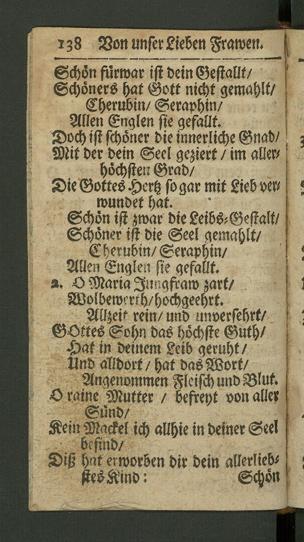 138 Von unser Lieben Frawen.
Schön fürwar ist dein Gestallt/
Schöners hat Gott nicht gemahlt/
Cherubin/ Seraphin/
Allen Englen sie gefallt.
Doch ist schöner die innerliche Gnad/
Mit der dein Seel geziert/ im aller-
höchsten Grad/
Die Gottes Hertz so gar mit Lieb ver-
wundet hat.
Schön ist zwar die Leibs-Gestalt/
Schöner ist die Seel gemahlt/
Cherubin/ Seraphin/
Allen Englen sie gefallt.
2. O Maria Jungfraw zart/
Wolbewerth/ hochgeehrt.
Allzeit rein/ und unversehrt/
GOttes Sohn das höchste Guth/
Hat in deinem Leib geruht/
Und alldort/ hat das Wort/
Angenommen Fleisch und Blut.
O raine Mutter / befreyt von aller
Sünd/
Kein Mackel ich allhie in deiner Seel
befind/
Diß hat erworben dir dein allerlieb-
stes Kind: Schön